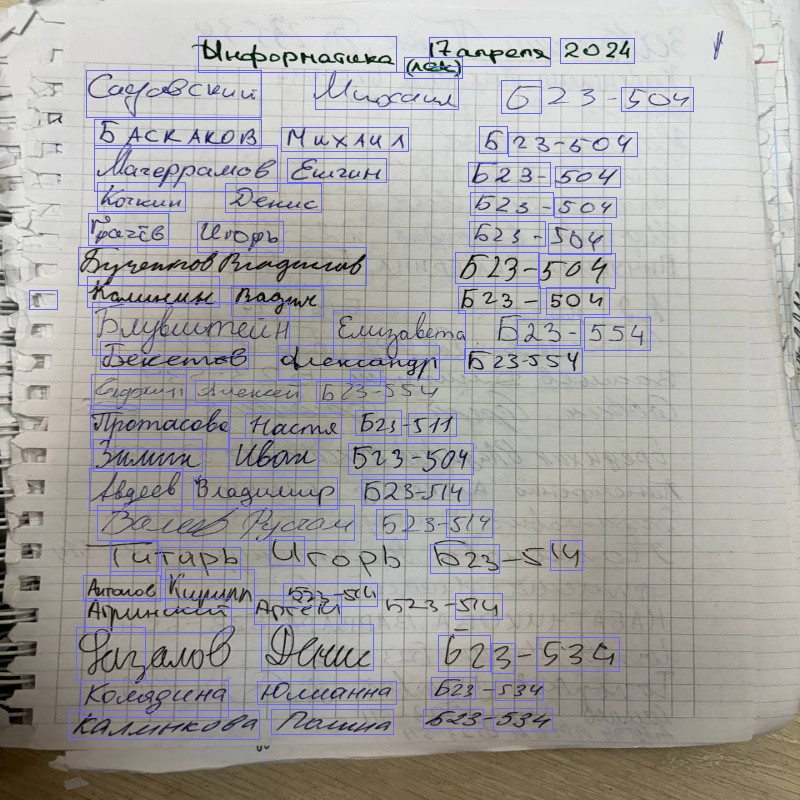 Информатика (лек) 17 апреля 2024
Садовский Михаил Б23-504
БАСКАКОВ МИХАИЛ Б23-504
Магеррамов Елчин Б23-504
Кочкин Денис Б23-504
Грачёв Игорь Б23-504
Владислав Б23-504
Калинин Вадим Б23-504
Блувштейн Елизавета Б23-554
Бекетов Александр Б23-554
Алексей Б23-554
Протасова Настя Б23-511
Зимин Иван Б23-504
Авдеев Владимир Б23-514
Валеев Рустам Б23-514
Титарь Игорь Б23-514
Антонов Кирилл Б23-514
Агринский Артём Б23-514
Фазалов Денис Б23-534
Колядина Юлианна Б23-534
Калинкова Полина Б23-534